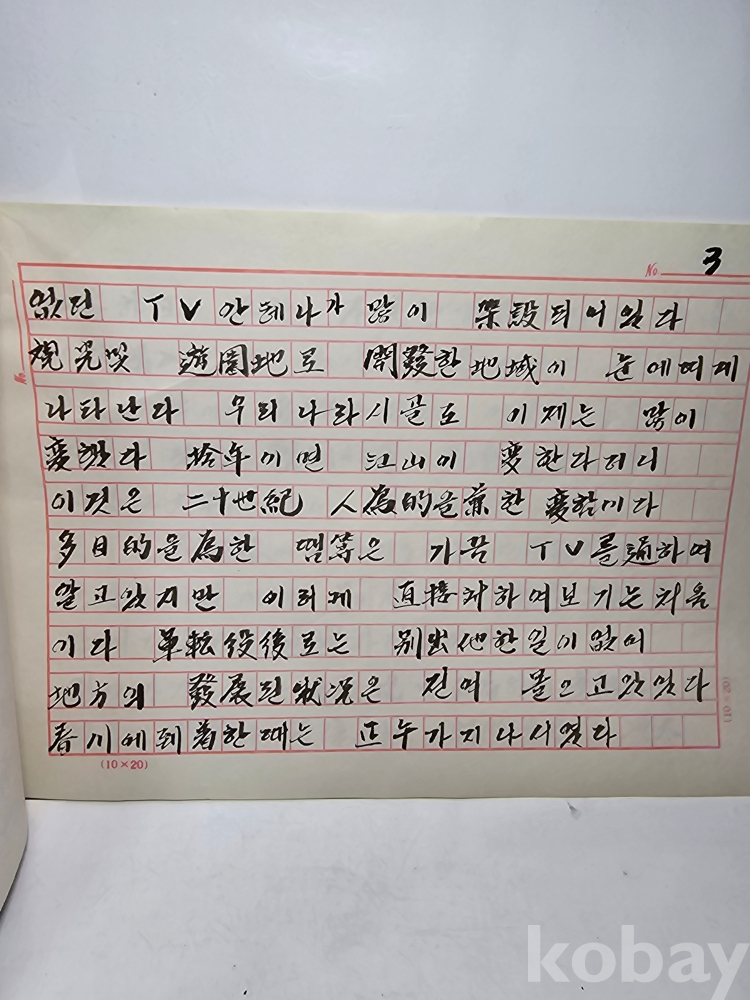 No. 3
없던 TV안테나가 많이 架設되어있다
観光및 遊園地로 開發한地域이 눈에띠게
나타난다 우리나라시골도 이제는 많이
変했다 拾年이면 江山이 変한다더니
이것은 二十世紀 人為的을兼한 変함이다
多目的을為한 땜等은 가끔 TV를通하여
알고있지만 이러게 直接対하여보기는처음
이다 単転役後로는 別出他한일이없어
地方의 發展된狀况은 전여 몰으고있었다
春川에到着한때는 正午가지나서였다
(10×20)
(10×20)
No.
kobay